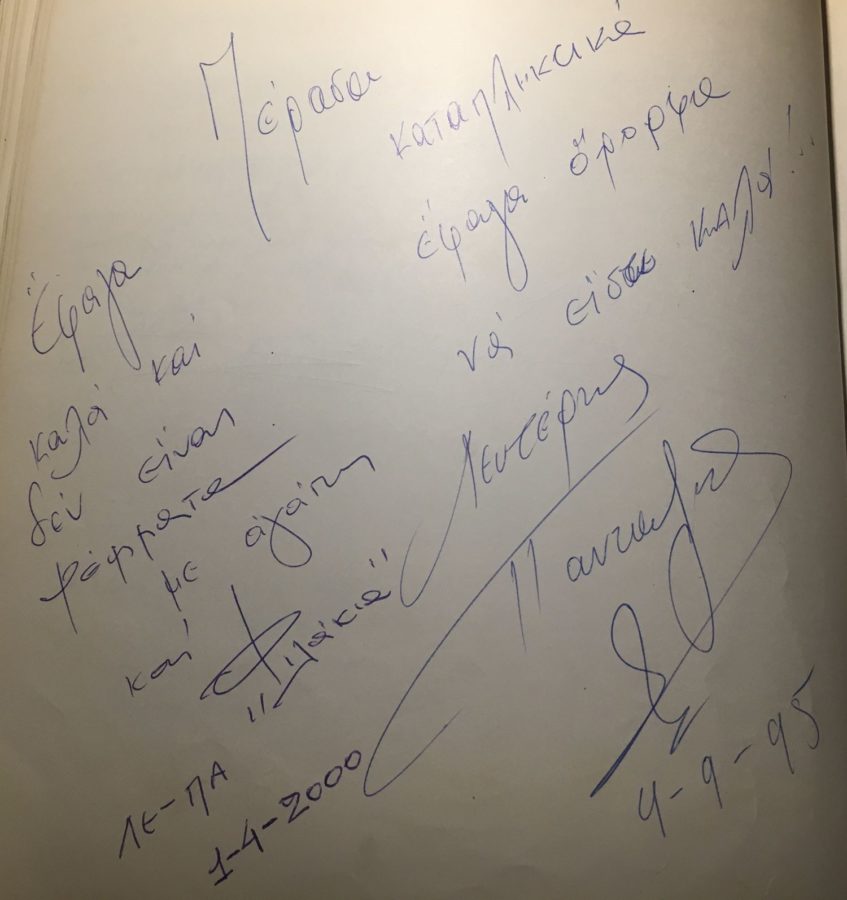 Πέρασα καταπληκτικά
ἔφαγα ὄμορφα
νά εἶσαι καλά!!
Λευτέρης
Πανταζής
4-9-95
Ἔφαγα
καλά καί
δέν εἶναι
ψέμματα
με ἀγάπη
και "Φιλάκια"
ΛΕ-ΠΑ
1-4-2000